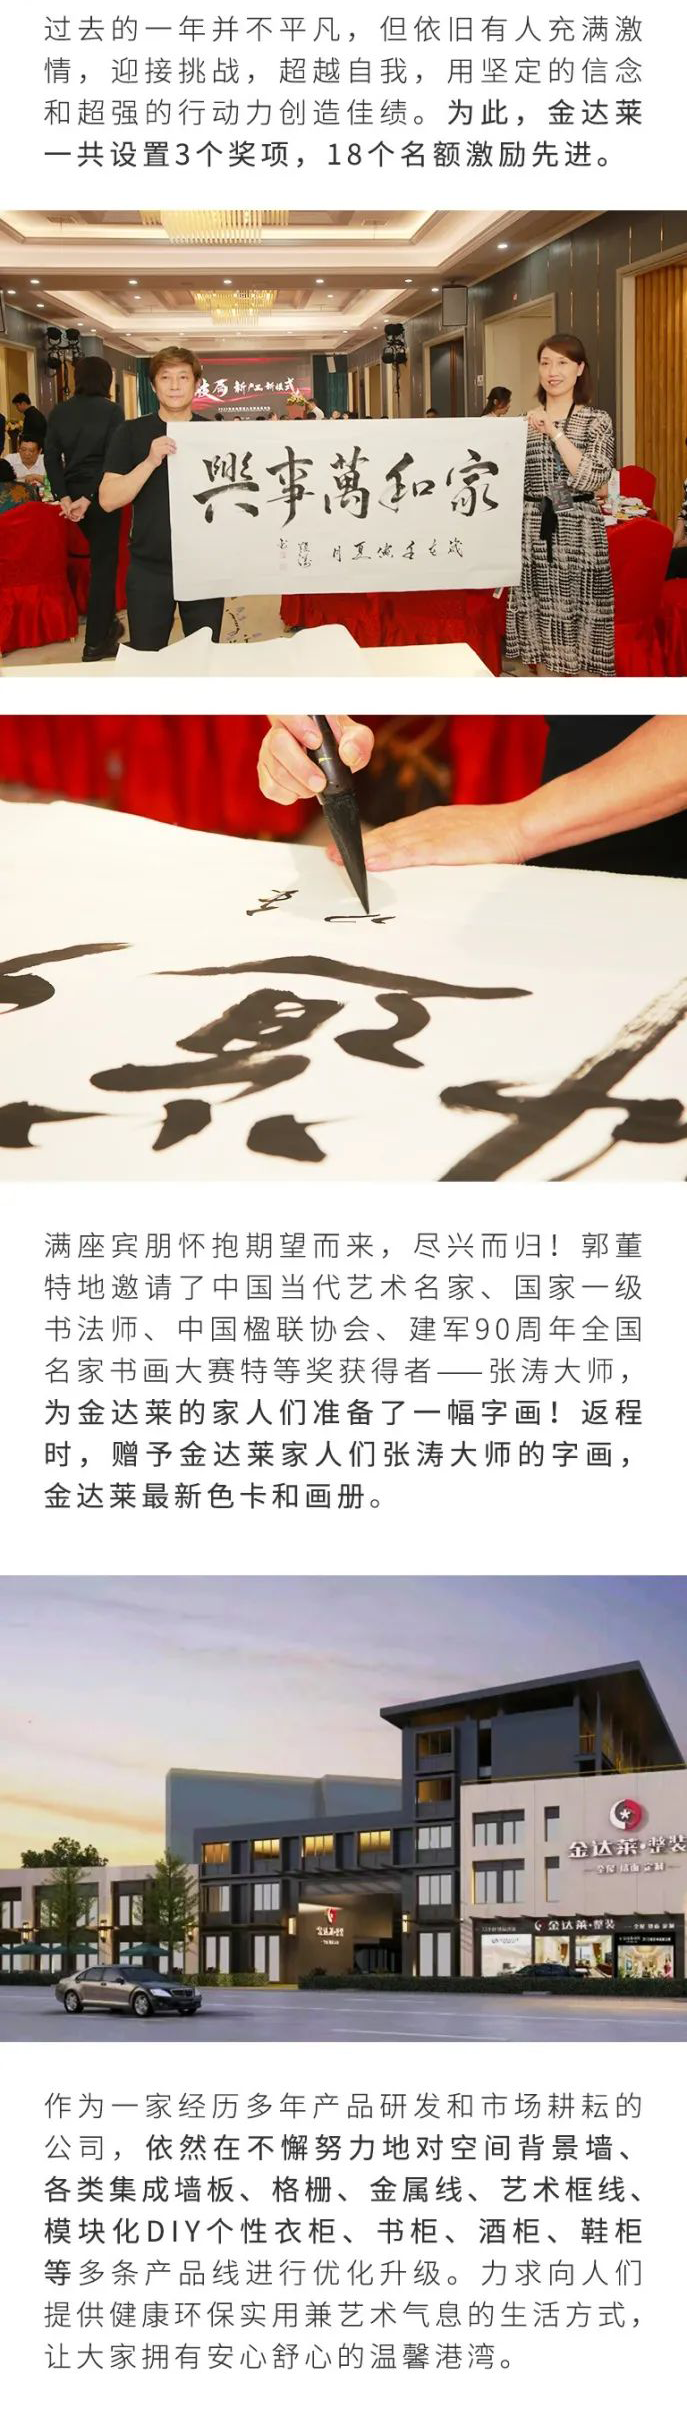 过去的一年并不平凡，但依旧有人充满激
情，迎接挑战，超越自我，用坚定的信念
和超强的行动力创造佳绩。为此，金达莱
一共设置3个奖项，18个名额激励先进。
新产品 新模式
家和萬事興
满座宾朋怀抱期望而来，尽兴而归！郭董
特地邀请了中国当代艺术名家、国家一级
书法师、中国楹联协会、建军90周年全国
名家书画大赛特等奖获得者——张涛大师，
为金达莱的家人们准备了一幅字画！返程
时，赠予金达莱家人们张涛大师的字画，
金达莱最新色卡和画册。
金达莱·整装
全屋 墙面 定制
金达莱·整装
作为一家经历多年产品研发和市场耕耘的
公司，依然在不懈努力地对空间背景墙、
各类集成墙板、格栅、金属线、艺术框线、
模块化DIY个性衣柜、书柜、酒柜、鞋柜
等多条产品线进行优化升级。力求向人们
提供健康环保实用兼艺术气息的生活方式，
让大家拥有安心舒心的温馨港湾。